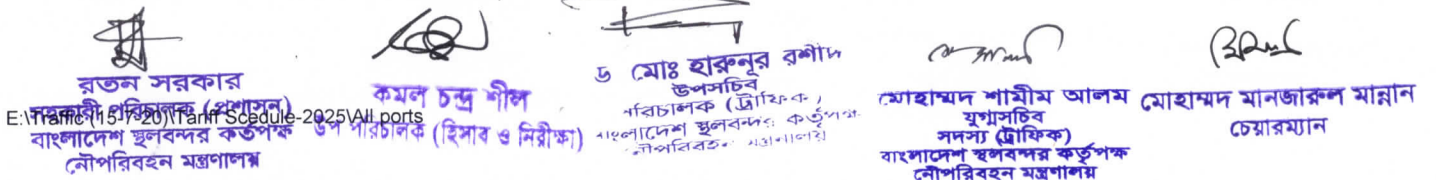 রতন সরকার
সহকারী পরিচালক (প্রশাসন)
বাংলাদেশ স্থলবন্দর কর্তৃপক্ষ
নৌপরিবহন মন্ত্রণালয়
E:\Traffic (15-7-20)\Tariff Scedule-2025\All ports
কমল চন্দ্র শীল
উপ পরিচালক (হিসাব ও নিরীক্ষা)
ড মোঃ হারুনূর রশীদ
উপসচিব
পরিচালক (ট্রাফিক)
বাংলাদেশ স্থলবন্দর কর্তৃপক্ষ
নৌপরিবহন মন্ত্রণালয়
মোহাম্মদ শামীম আলম
যুগ্মসচিব
সদস্য (ট্রাফিক)
বাংলাদেশ স্থলবন্দর কর্তৃপক্ষ
নৌপরিবহন মন্ত্রণালয়
মোহাম্মদ মানজারুল মান্নান
চেয়ারম্যান